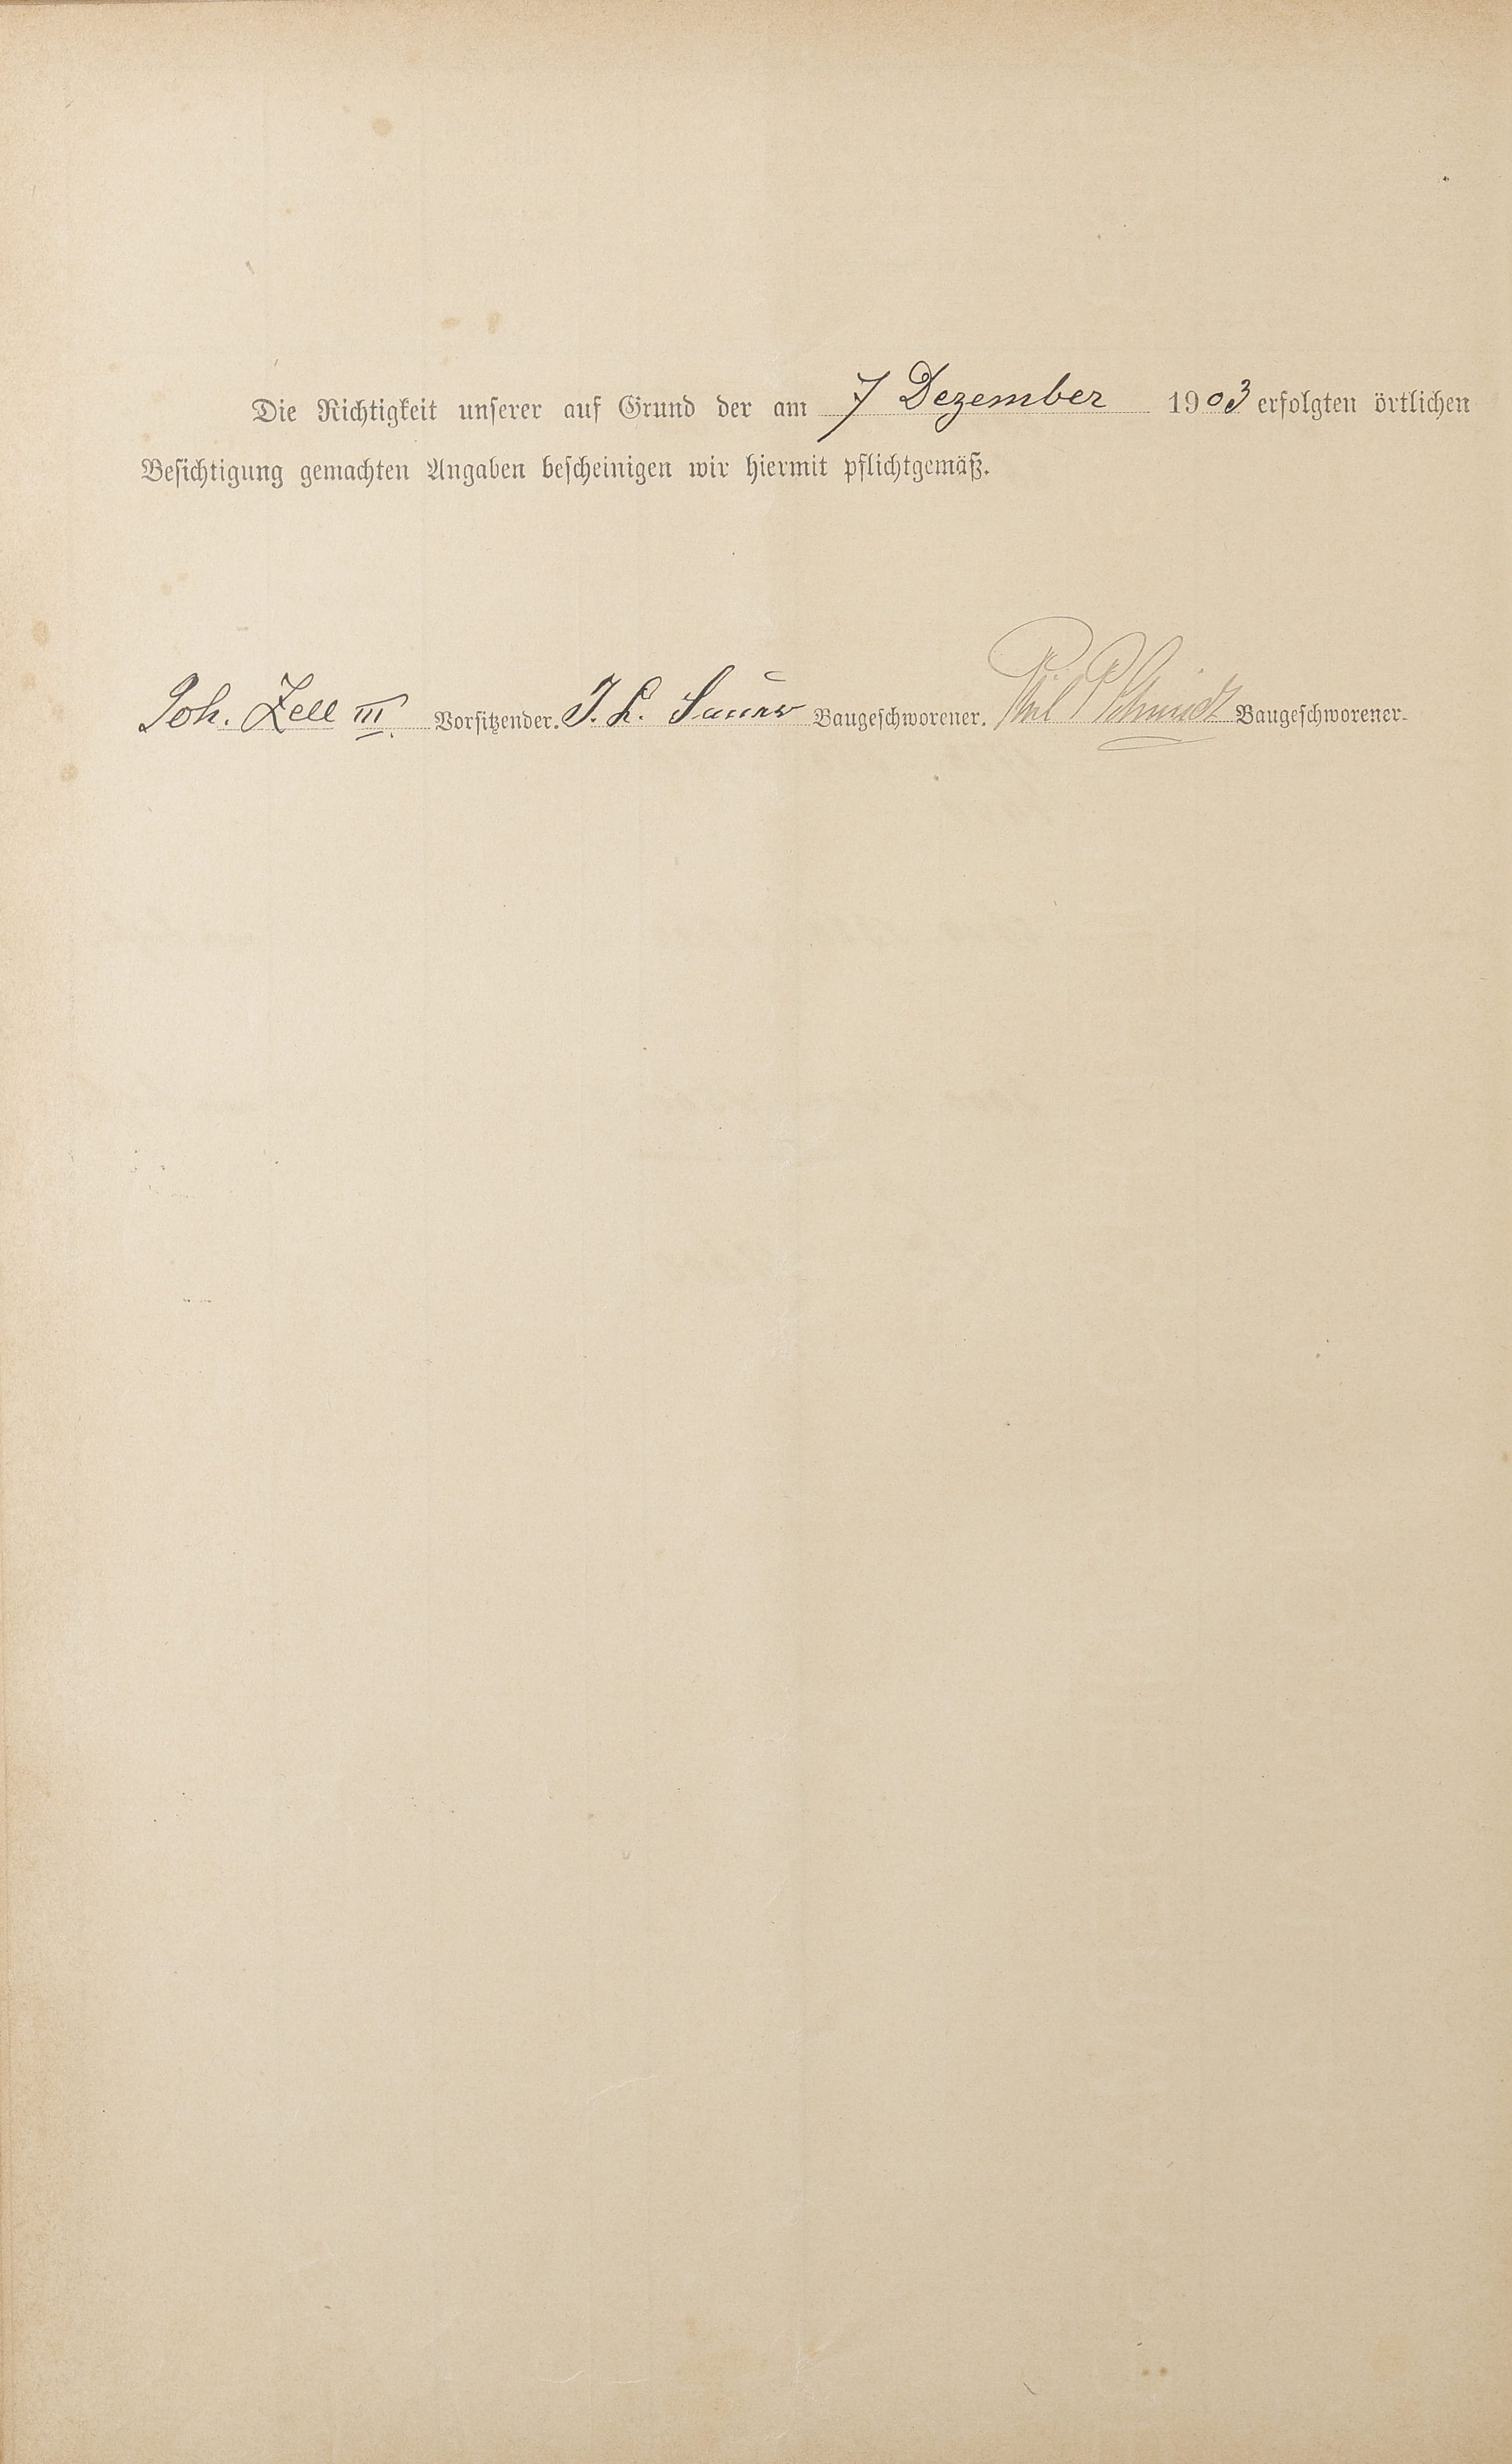 Die Richtigkeit unserer auf Grund der am 7 Dezember 1903 erfolgten örtlichen
Besichtigung gemachten Angaben bescheinigen wir hiermit pflichtgemäß.
Joh. Zell III. Vorsitzender. J. L. Sauer Baugeschworener. Phil Schmidt Baugeschworener.